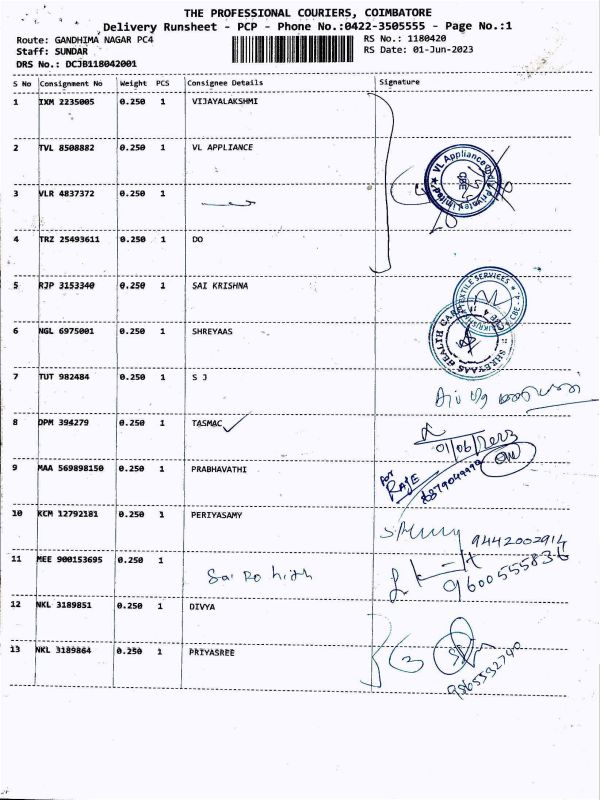 THE PROFESSIONAL COURIERS, COIMBATORE
Delivery Runsheet - PCP - Phone No.:0422-3505555 - Page No.:1
Route: GANDHIMA NAGAR PC4 RS No.: 1180420
Staff: SUNDAR RS Date: 01-Jun-2023
DRS No.: DCJB118042001
S No Consignment No Weight PCS Consignee Details Signature
1 IXM 2235005 0.250 1 VIJAYALAKSHMI
2 TVL 8508882 0.250 1 VL APPLIANCE
VL Appliance Private Limited
CBE
3 VLR 4837372 0.250 1
4 TRZ 25493611 0.250 1 DO
5 RJP 3153340 0.250 1 SAI KRISHNA
TEXTILE SERVICES
CBE - 4
6 NGL 6975001 0.250 1 SHREYAAS
SHREYAAS HEALTH CARE
7 TUT 982484 0.250 1 S J
8 DPM 394279 0.250 1 TASMAC
01/06/2023
9 MAA 569898150 0.250 1 PRABHAVATHI
for
RAJE
10 KCM 12792181 0.250 1 PERIYASAMY
9442002914
11 MEE 900153695 0.250 1 Sai Rohith
9600555836
12 NKL 3189851 0.250 1 DIVYA
13 NKL 3189864 0.250 1 PRIYASREE
3
9565532740